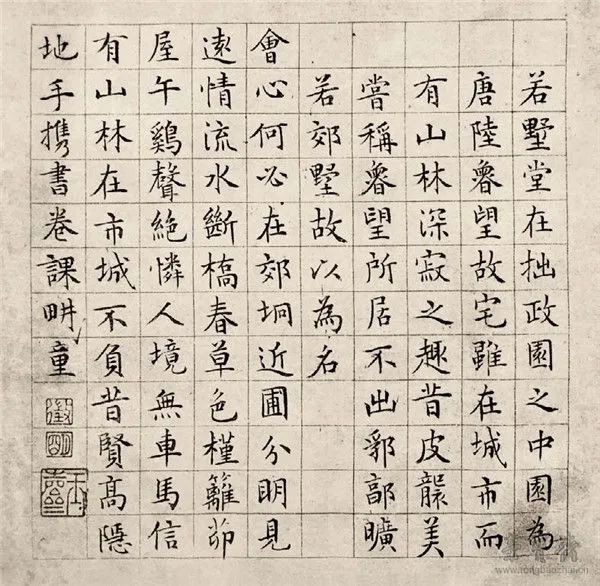 若墅堂在拙政園之中園為
唐陸魯望故宅雖在城市而
有山林深寂之趣昔皮襲美
嘗稱魯望所居不出郛郭曠
若郊墅故以為名
會心何必在郊坰近圃分明見
遠情流水斷橋春草色槿籬茆
屋午鷄聲絶憐人境無車馬信
有山林在市城不負昔賢高隱
地手攜書卷課畊童
徵明
www.rongbaozhai.cn